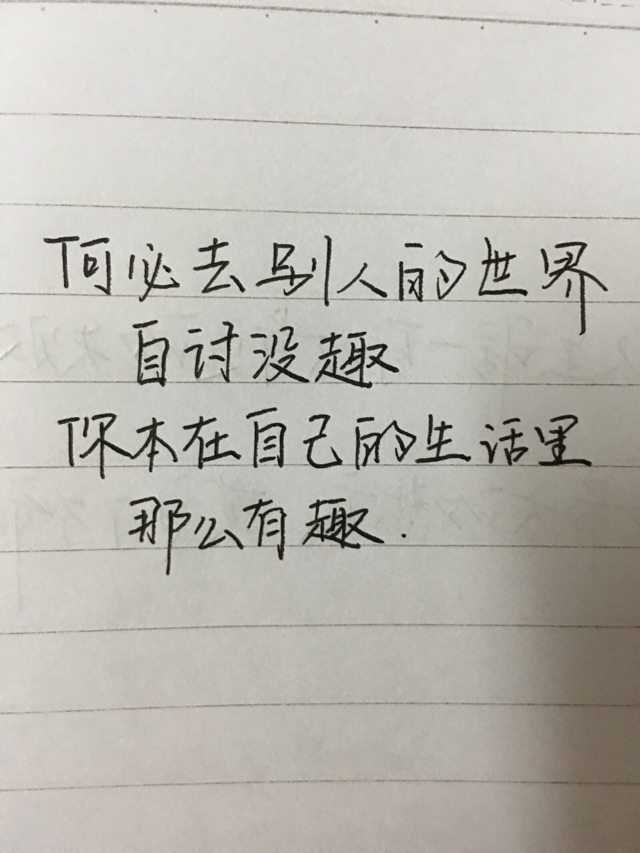 何必去别人的世界
自讨没趣
你本在自己的生活里
那么有趣.